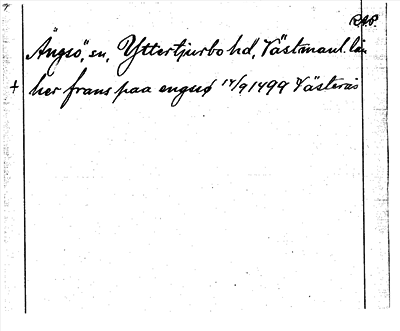 RAP.
Ängsö, sn, Yttertjurbo hd, Västmanl. län
+ her frans paa engsø 14/9 1499 Västerås